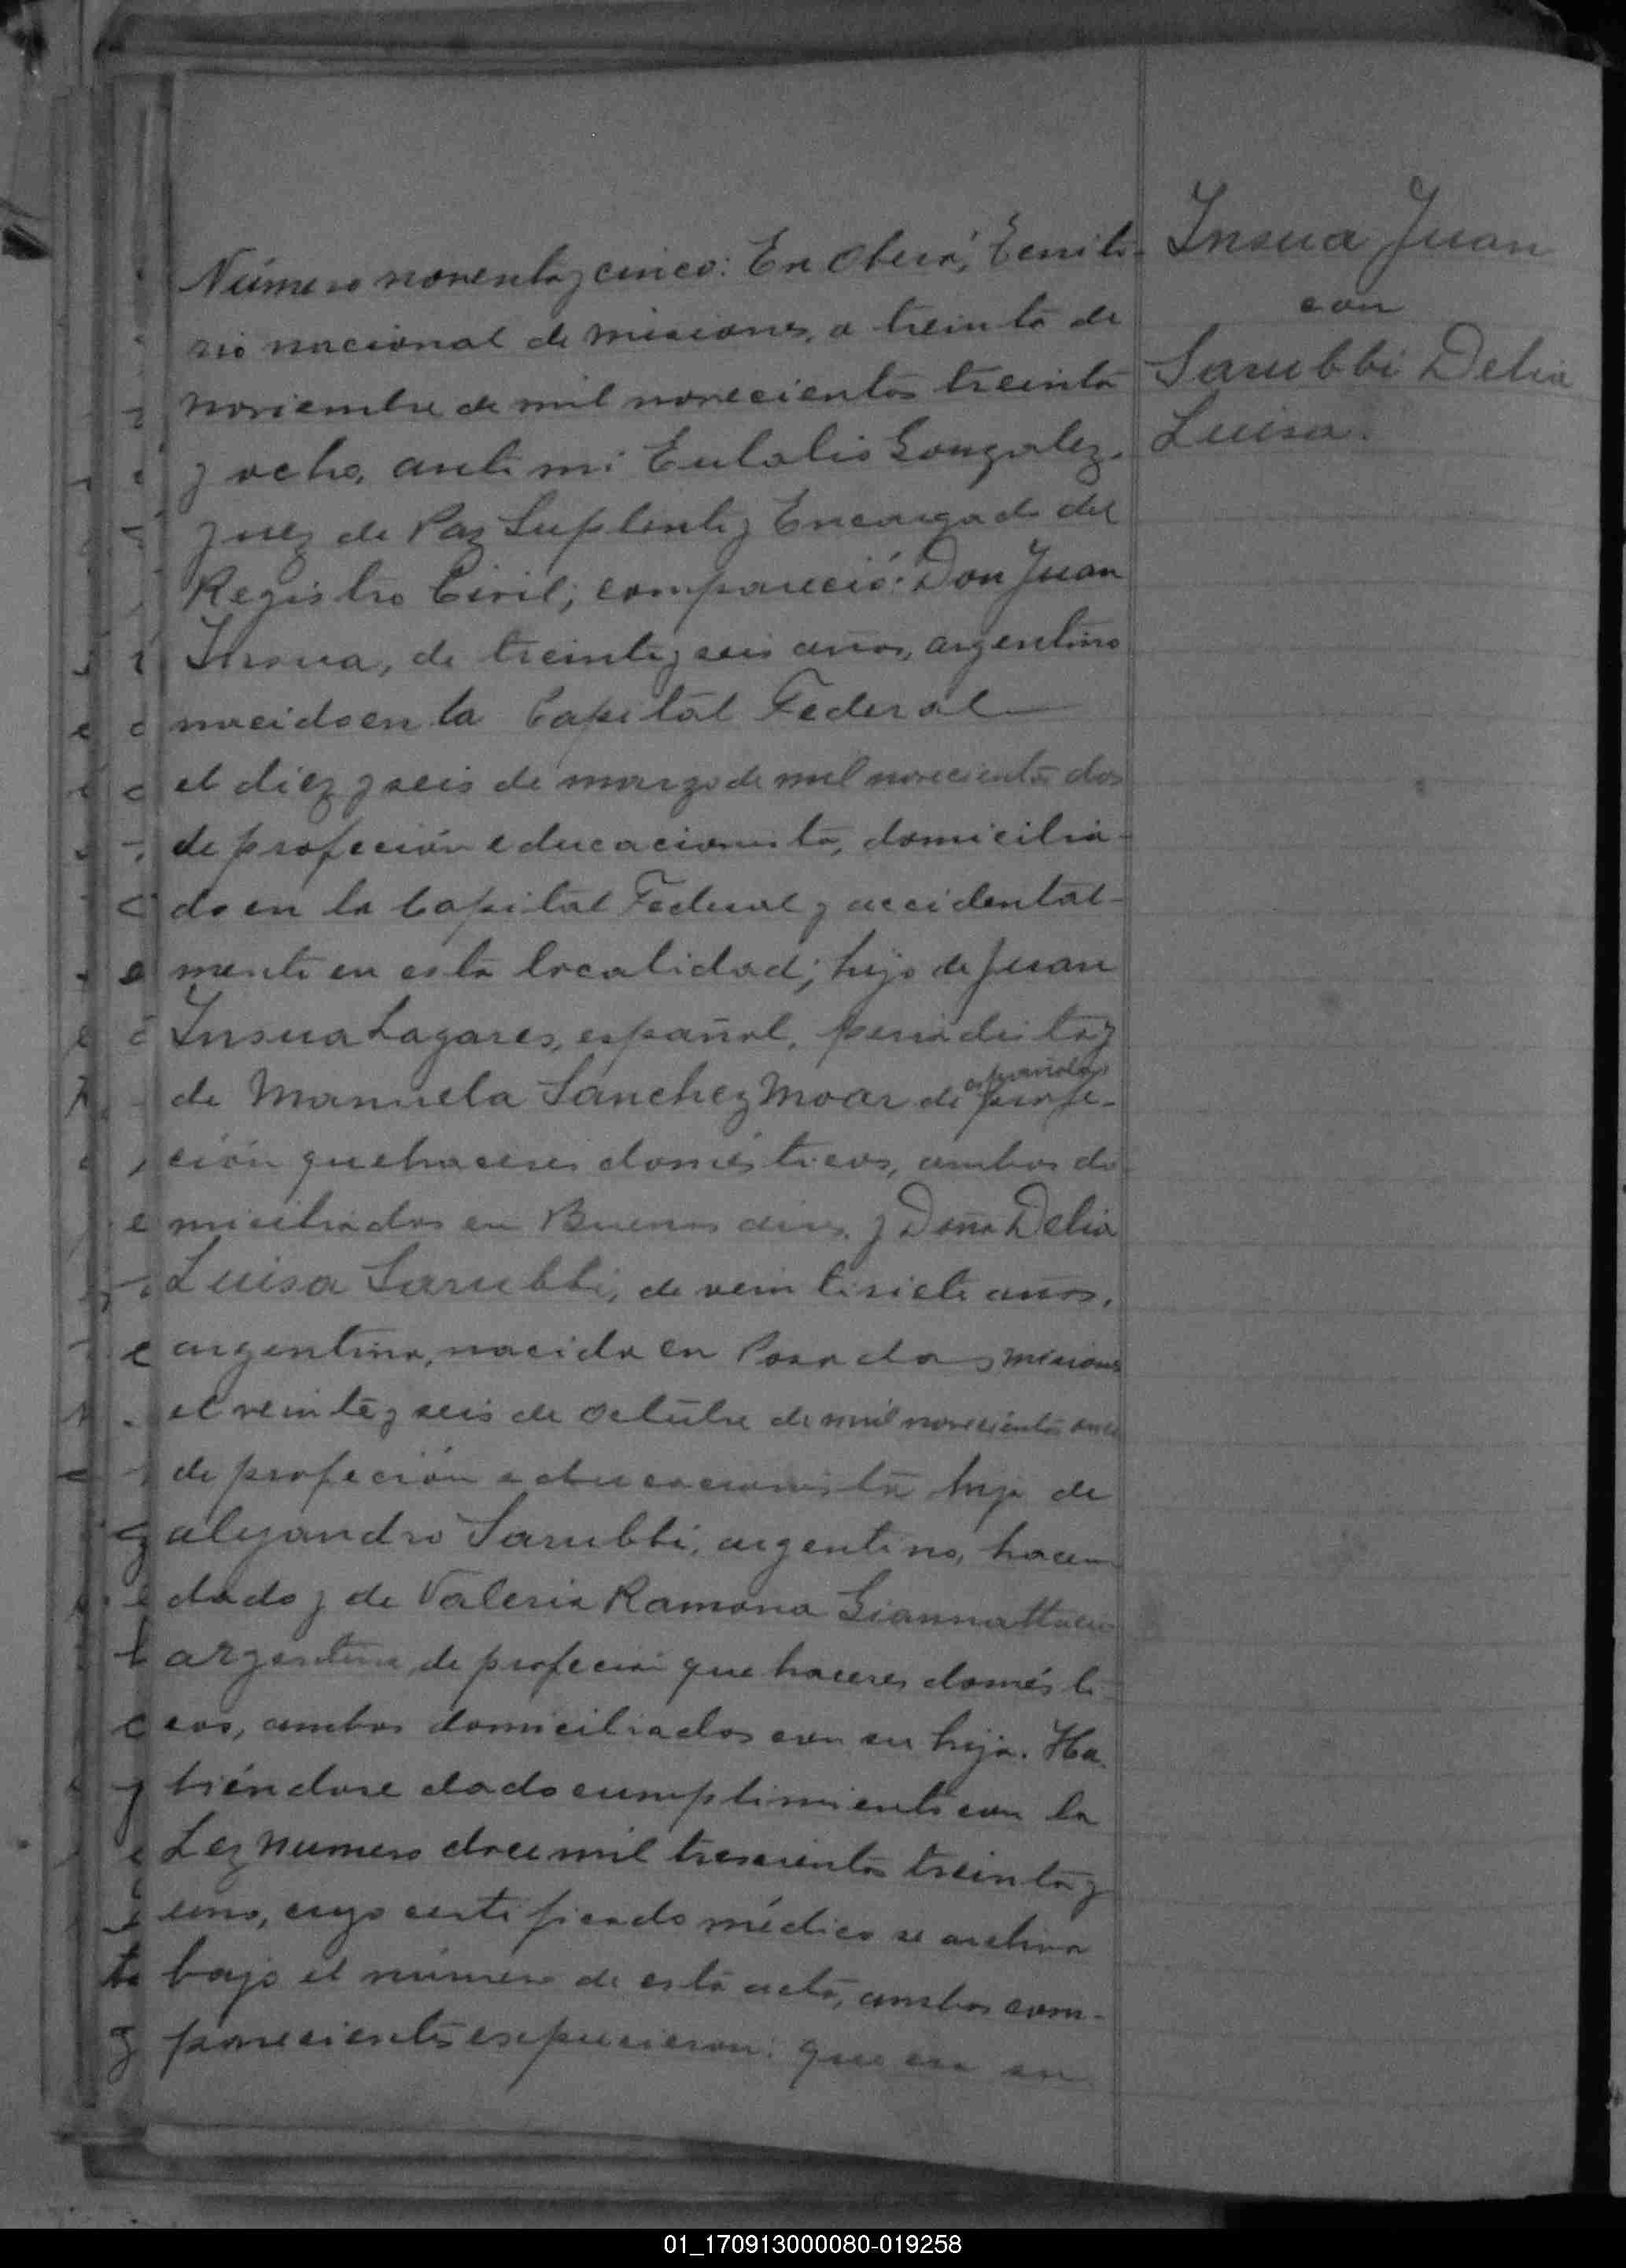 Insua Juan
con
Sarubbi Delia
Luisa.
Número noventa y cinco: En Oberá, Territo-
rio nacional de misiones, a treinta de
noviembre de mil novecientos treinta
y ocho, ante mi Eulalio Gonzalez,
Juez de Paz Suplente y Encargado del
Registro Civil; compareció: Don Juan
Insua, de treinta y seis años, argentino
nacido en la Capital Federal
el diez y seis de marzo de mil novecientos dos
de profeción educacionista, domicilia-
do en la Capital Federal y accidental-
mente en esta localidad; hijo de Juan
Insua Lagares, español, periodista y
española
de Manuela Sanchez Moar de profe-
ción quehaceres domésticos, ambos do-
miciliados en Buenos aires. y Doña Delia
Luisa Sarubbi, de veintisiete años,
argentina, nacida en Posadas misiones
el veinte y seis de octubre de mil novecientos once
de profeción educacionista hija de
alejandro Sarubbi, argentino, hacen
dado y de Valeria Ramona
argentina, de profecion que haceres domésti-
cos, ambos domiciliados con su hija. Ha-
biéndose dado cumplimiento con la
Ley numero doce mil trescientos treinta y
uno, cuyo certificado médico se archiva
bajo el número de esta acta, ambos com-
parecientes espucieron: que era su
01_170913000080-019258